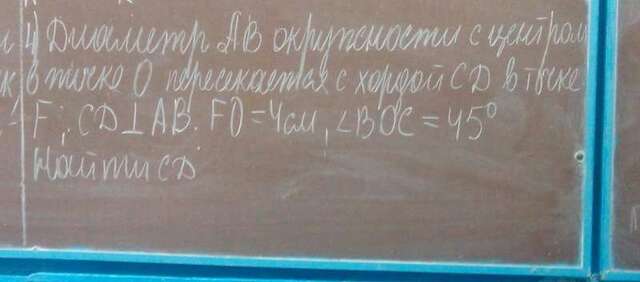 4) Диаметр АВ окружности с центром
в точке О пересекается с хордой CD в точке
F; CD⊥AB. FO=4см, ∠BOC=45°
Найти CD